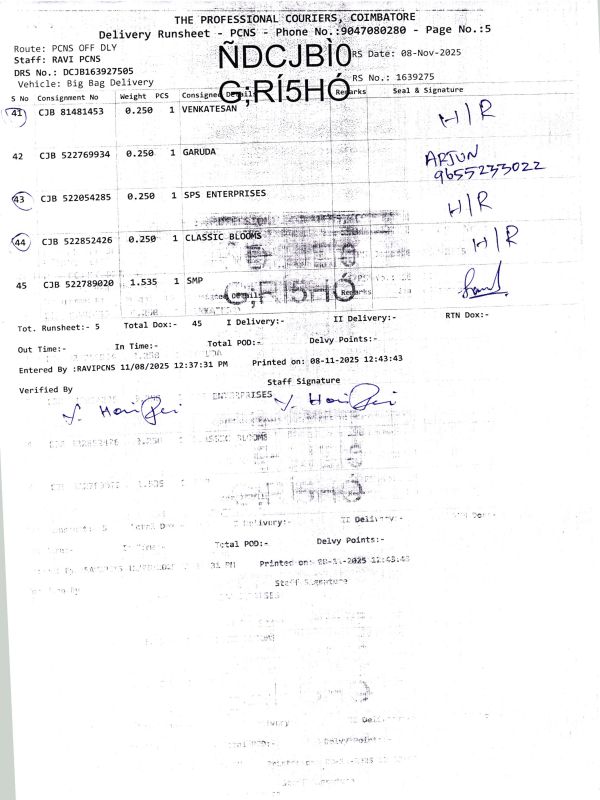 THE PROFESSIONAL COURIERS, COIMBATORE
Delivery Runsheet - PCNS - Phone No.:9047080280 - Page No.:5
Route: PCNS OFF DLY
ÑDCJBÌ0
RS Date: 08-Nov-2025
Staff: RAVI PCNS
DRS No.: DCJB163927505
G;RÍ5HÓ
RS No.: 1639275
Vehicle: Big Bag Delivery
S No Consignment No Weight PCS Consigned Details Remarks Seal & Signature
41 CJB 81481453 0.250 1 VENKATESAN H/R
42 CJB 522769934 0.250 1 GARUDA ARJUN
9655233022
43 CJB 522054285 0.250 1 SPS ENTERPRISES H/R
44 CJB 522852426 0.250 1 CLASSIC BLOOMS H/R
45 CJB 522789020 1.535 1 SMP
G;RÍ5HÓ
Tot. Runsheet:- 5 Total Dox:- 45 I Delivery:- II Delivery:- RTN Dox:-
Out Time:- In Time:- Total POD:- Delvy Points:-
Entered By :RAVIPCNS 11/08/2025 12:37:31 PM Printed on: 08-11-2025 12:43:43
Verified By Staff Signature
ENTERPRISES
I Delivery:- II Delivery:-
Total POD:- Delvy Points:-
31 PM Printed on: 08-11-2025 12:43:43
Staff Signature